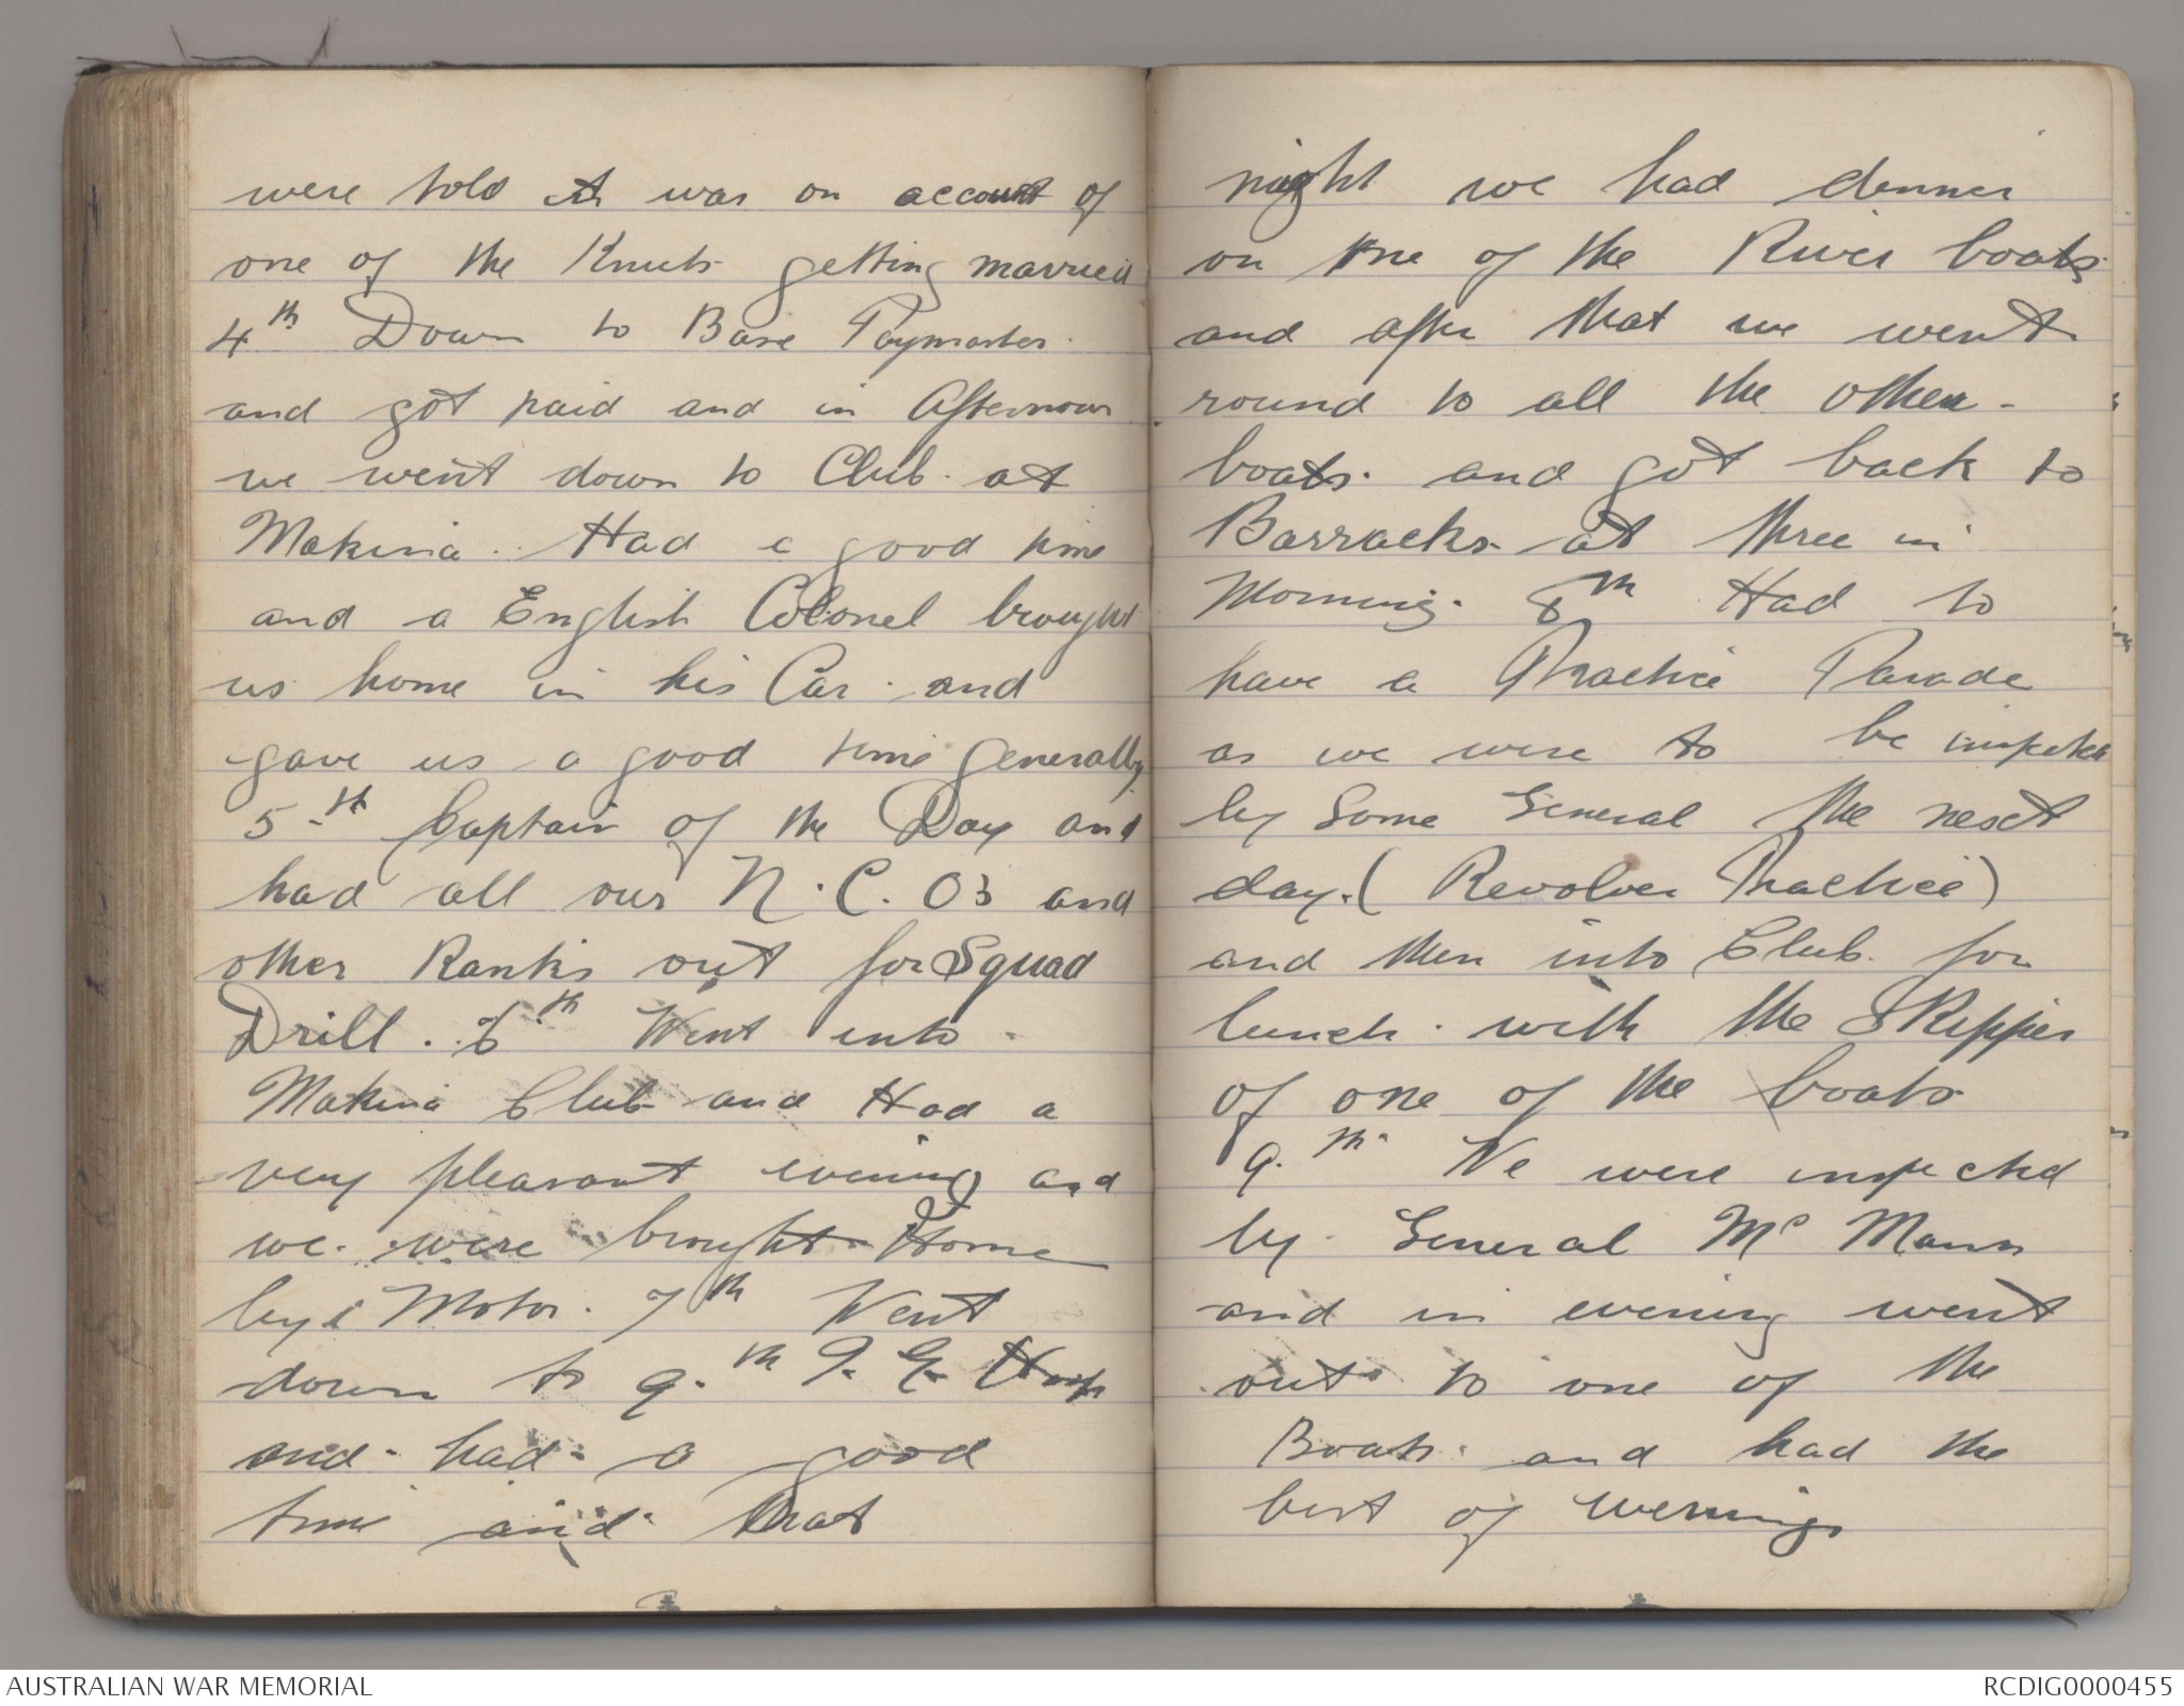 were told it was on account of
one of the Knuts getting married
4th Down to Base Paymaster
and got paid and in Afternoon
we went down to Club. at
Makina. Had a good time
and a English Colonel brought
us home in his Car. and
gave us a good time generally
5th Captain of the Day and
had all our N.C.Os and
other Ranks out for Squad
Drill. 6th Went into
Makina Club and Had a
very pleasant evening and
we were brought Home
by Motor. 7th Went
down to 9.th I. G. Hosp
and had a good
time and that
night we had dinner
on one of the River boats
and after that we went
round to all the other
boats. and got back to
Barracks at three in
Morning. 8th Had to
have a Practice Parade
as we were to be inspected
by Some General the next
day. (Revolver Practice)
and then into Club. for
lunch. with the Skipper
of one of the boats
9.th We were inspected
by General Mc Mann
and in evening went
out to one of the
Boats. and had the
best of evenings
AUSTRALIAN WAR MEMORIAL
RCDIG0000455